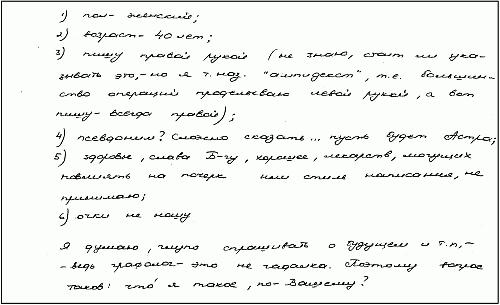 1) пол - женский;
2) возраст - 40 лет;
3) пишу правой рукой (не знаю, стоит ли ука-
зывать это, - но я т. наз. "амбидекст", т.е. большин-
ство операций проделываю левой рукой, а вот
пишу - всегда правой);
4) псевдоним? Сложно сказать... пусть будет Астра;
5) здоровье, слава Б-гу, хорошее, лекарств, могущих
повлиять на почерк или стиль написания, не
принимаю;
6) очки не ношу
Я думаю, глупо спрашивать о будущем и т.п., -
- ведь графолог - это не гадалка. Поэтому вопрос
таков: что я такое, по-Вашему?